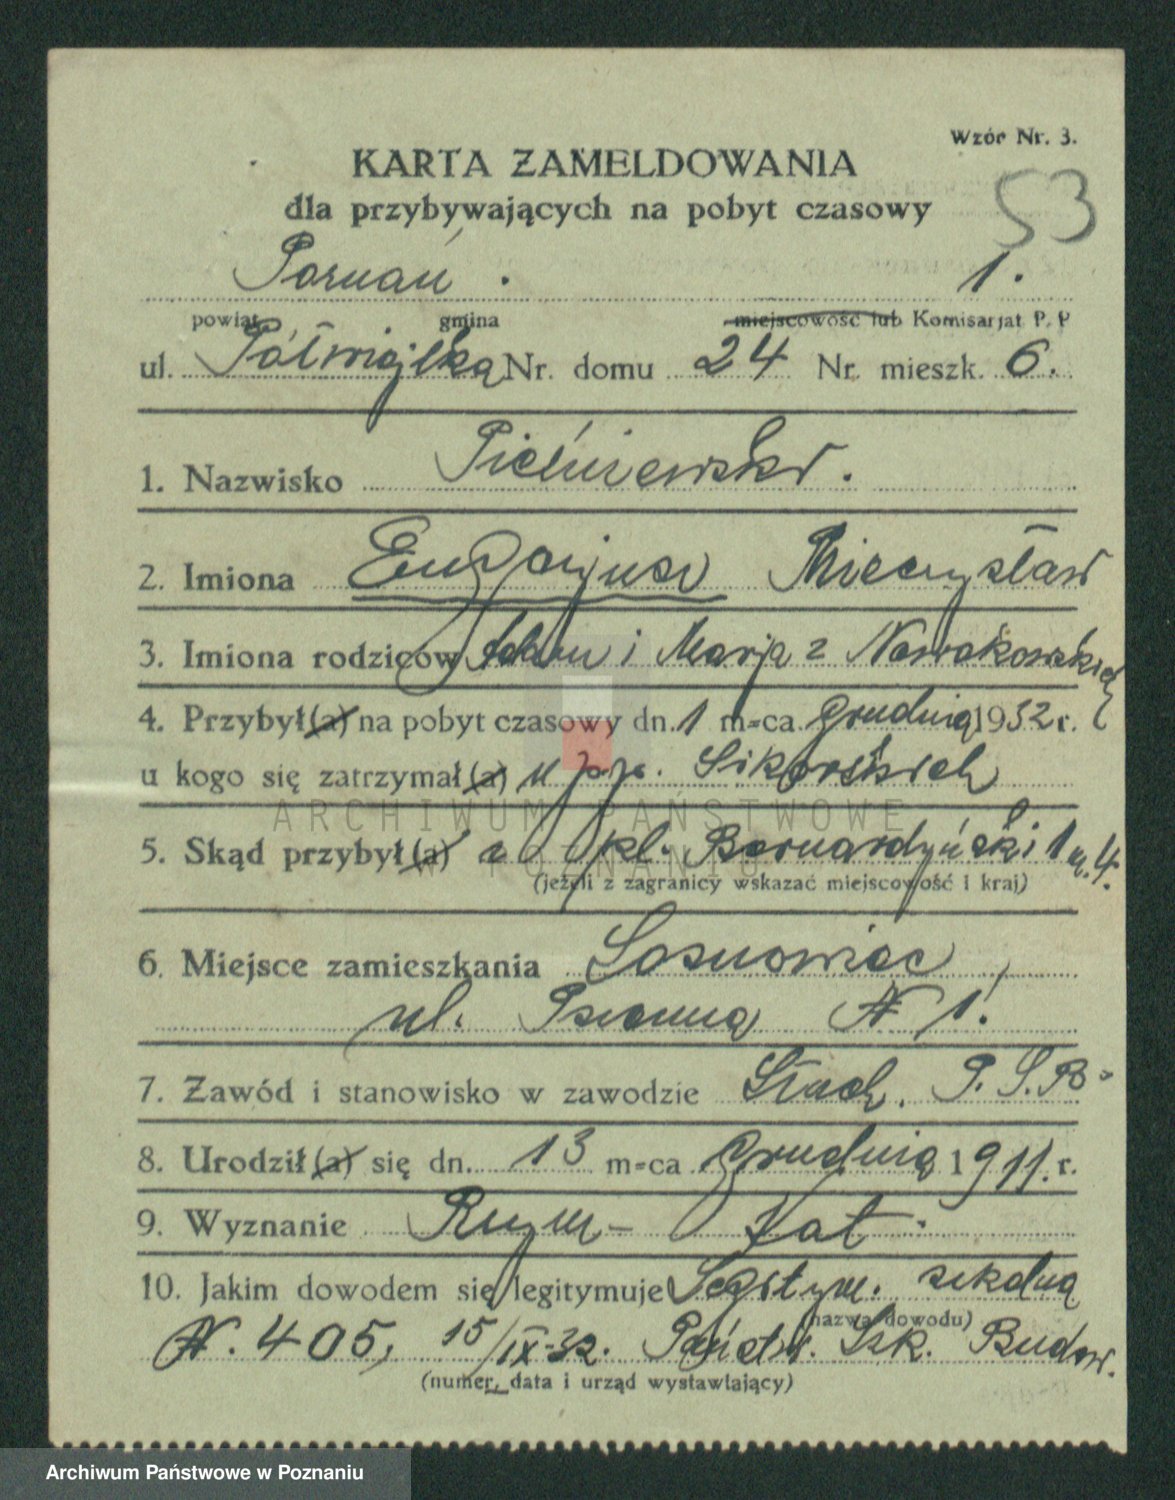 Wzór Nr. 3.
KARTA ZAMELDOWANIA
dla przybywających na pobyt czasowy
53
Poznań . 1.
powiat gmina miejscowość lub Komisarjat P. P
ul. Półwiejska Nr. domu 24 Nr. mieszk. 6.
1. Nazwisko Pieśniewski.
2. Imiona Eugenjusz Mieczysław
3. Imiona rodziców Adam i Marja z Nowakowskich
4. Przybył(a) na pobyt czasowy dn. 1 m-ca grudnia 1932 r.
u kogo się zatrzymał(a) u p.p. Sikorskich
ARCHIWUM PAŃSTWOWE
W POZNANIU
5. Skąd przybył(a) z pl. Bernardyński 1 m. 4.
(jeżeli z zagranicy wskazać miejscowość i kraj)
6. Miejsce zamieszkania Sosnowiec,
ul. N 1.
7. Zawód i stanowisko w zawodzie Słuch. P.S.B.
8. Urodził(a) się dn. 13 m-ca grudnia 1911. r.
9. Wyznanie Rzym-Kat.
10. Jakim dowodem się legitymuje Legitym. szkolną
(nazwa dowodu)
N. 405, 15/IX-32. Państw. Szk. Budow.
(numer, data i urząd wystawiający)
Archiwum Państwowe w Poznaniu